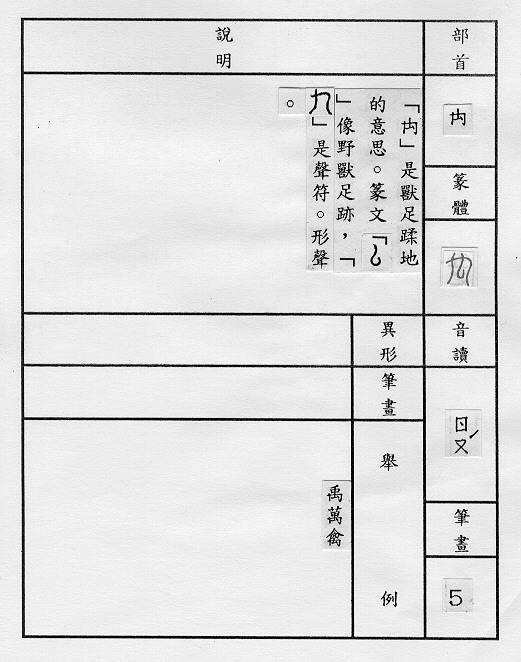 部首
禸
篆體
音讀
ㄖㄡˊ
筆畫
5
說明
「禸」是獸足蹂地
的意思。篆文「
」像野獸足跡，「
」是聲符。形聲
。
異形
筆畫
舉例
禹萬禽